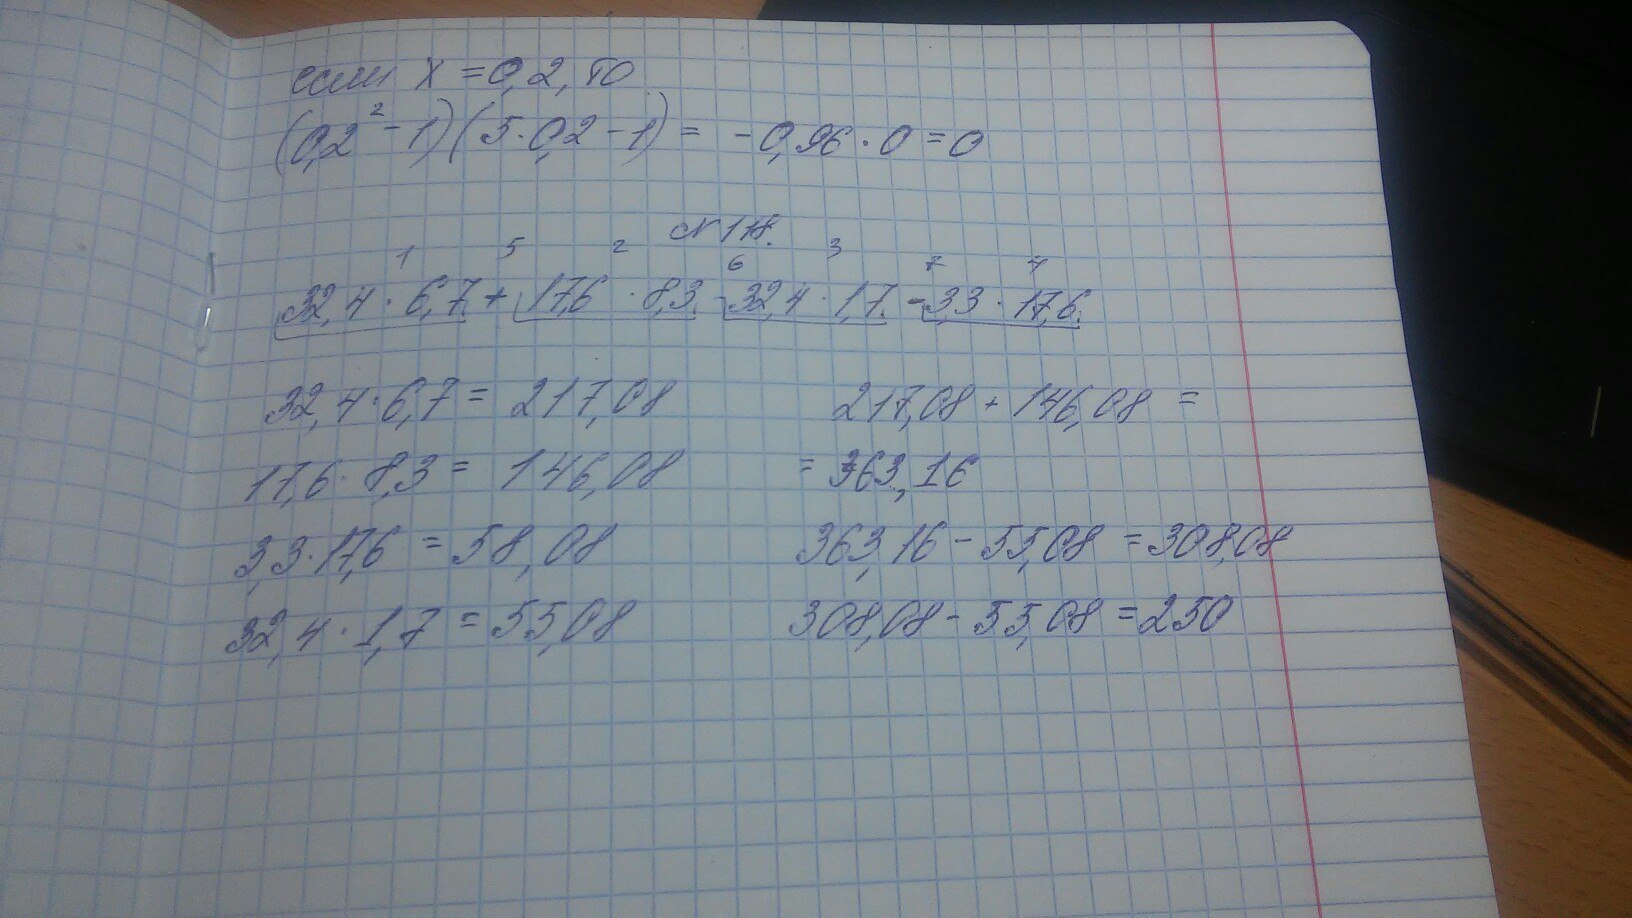 если x = 0,2, то
(0,2² - 1)(5 · 0,2 - 1) = - 0,96 · 0 = 0
N 118.
1 5 2 6 3 7 4
32,4 · 6,7 + 17,6 · 8,3 - 32,4 · 1,7 - 3,3 · 17,6
32,4 · 6,7 = 217,08
17,6 · 8,3 = 146,08
3,3 · 17,6 = 58,08
32,4 · 1,7 = 55,08
217,08 + 146,08 =
= 363,16
363,16 - 55,08 = 308,08
308,08 - 55,08 = 250